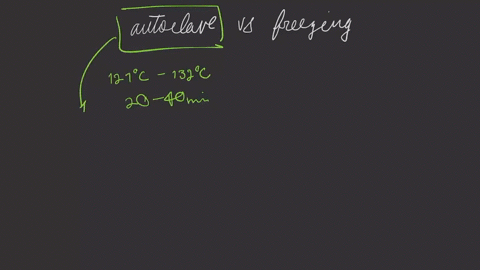 autoclave vs freezing
121°C - 132°C
20 - 40 min